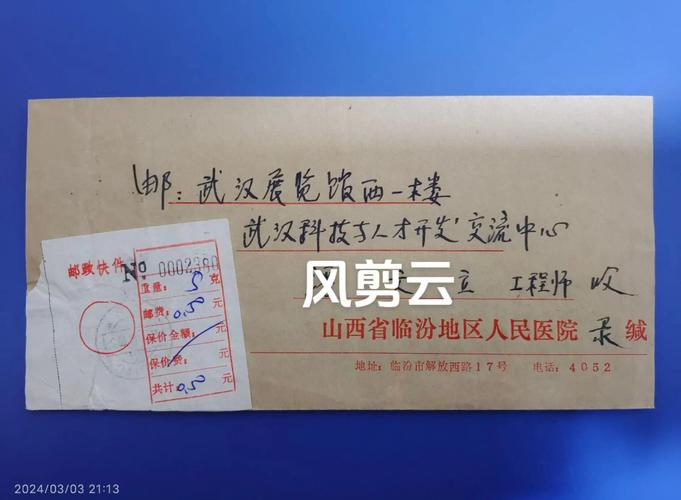 邮：武汉展览馆西一楼
武汉科技与人才开发交流中心
立 工程师 收
风剪云
山西省临汾地区人民医院 录 缄
地址：临汾市解放西路17号 电话：4052
邮政快件 №
重量：5克
邮费：0.50元
保价金额： 元
保价费： 元
共计 0.50元
2024/03/03 21:13